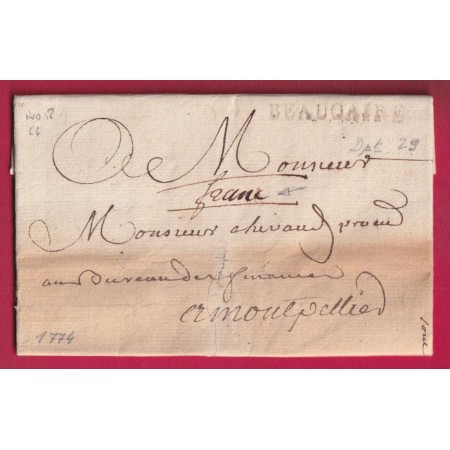 BEAUCAIRE
Dpt 29
A Monsieur
franc
Monsieur chivaud
au Bureau des finances
a montpellier
1774